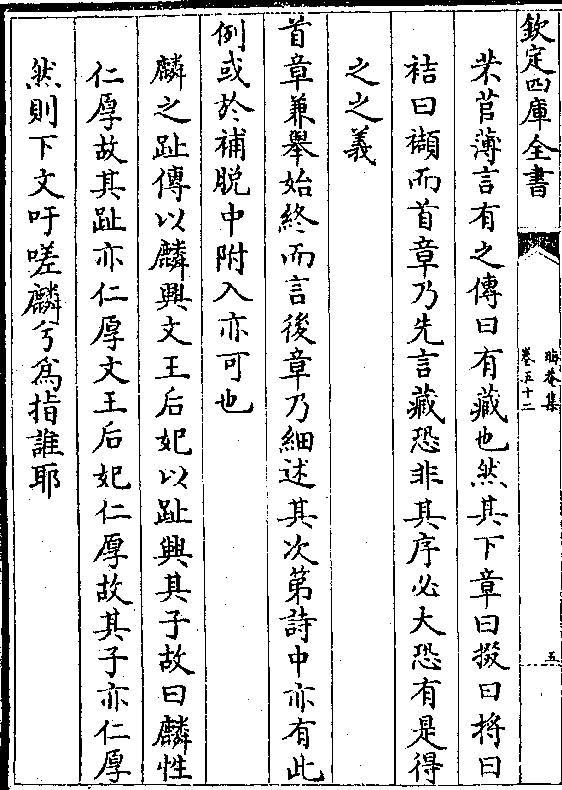 欽定四庫全書
晦菴集
卷五十二
五
芣苢薄言有之傳曰有藏也然其下章曰掇曰捋曰
袺曰襭而首章乃先言藏恐非其序必大恐有是得
之之義
首章兼舉始終而言後章乃細述其次第詩中亦有此
例或於補脱中附入亦可也
麟之趾傳以麟興文王后妃以趾興其子故曰麟性
仁厚故其趾亦仁厚文王后妃仁厚故其子亦仁厚
然則下文吁嗟麟兮為指誰耶